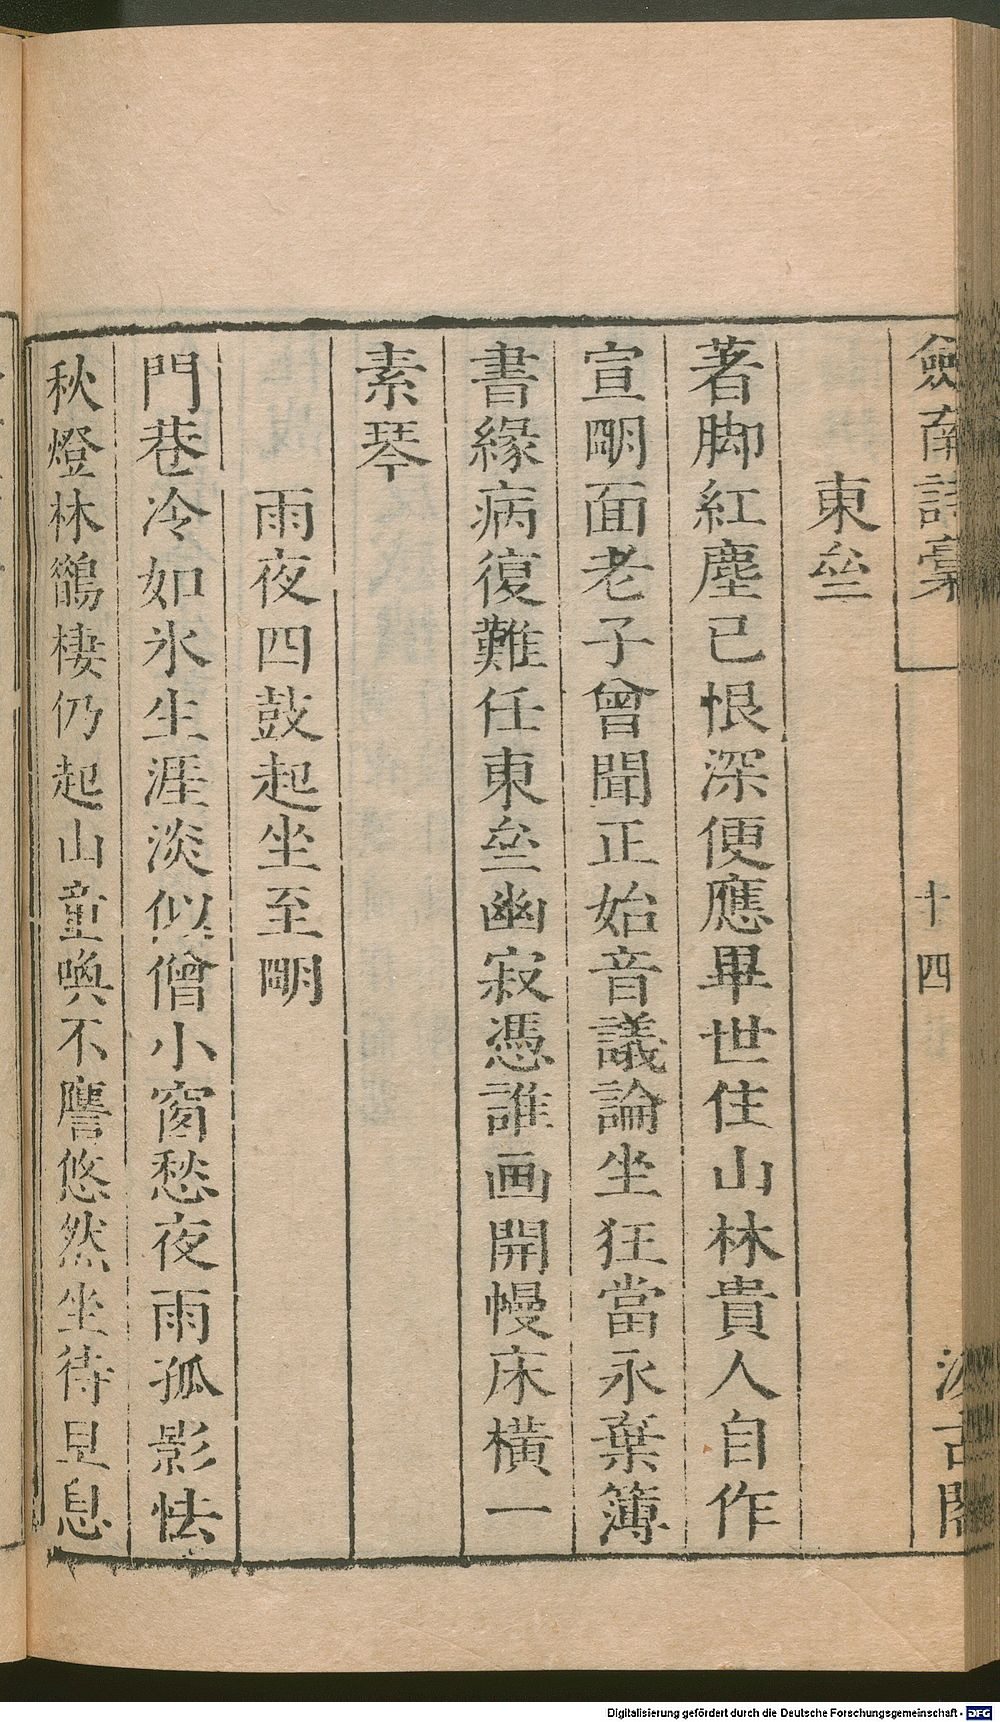 劍南詩稾
十四
汲古閣
東壘
著脚紅塵已恨深便應畢世住山林貴人自作
宣朙面老子曾聞正始音議論坐狂當永棄簿
書緣病復難任東壘幽寂憑誰画開幔床橫一
素琴
雨夜四鼓起坐至朙
門巷冷如氷生涯淡似僧小窗愁夜雨孤影怯
秋燈林鶻棲仍起山童喚不譍悠然坐待旦息
Digitalisierung gefördert durch die Deutsche Forschungsgemeinschaft - DFG